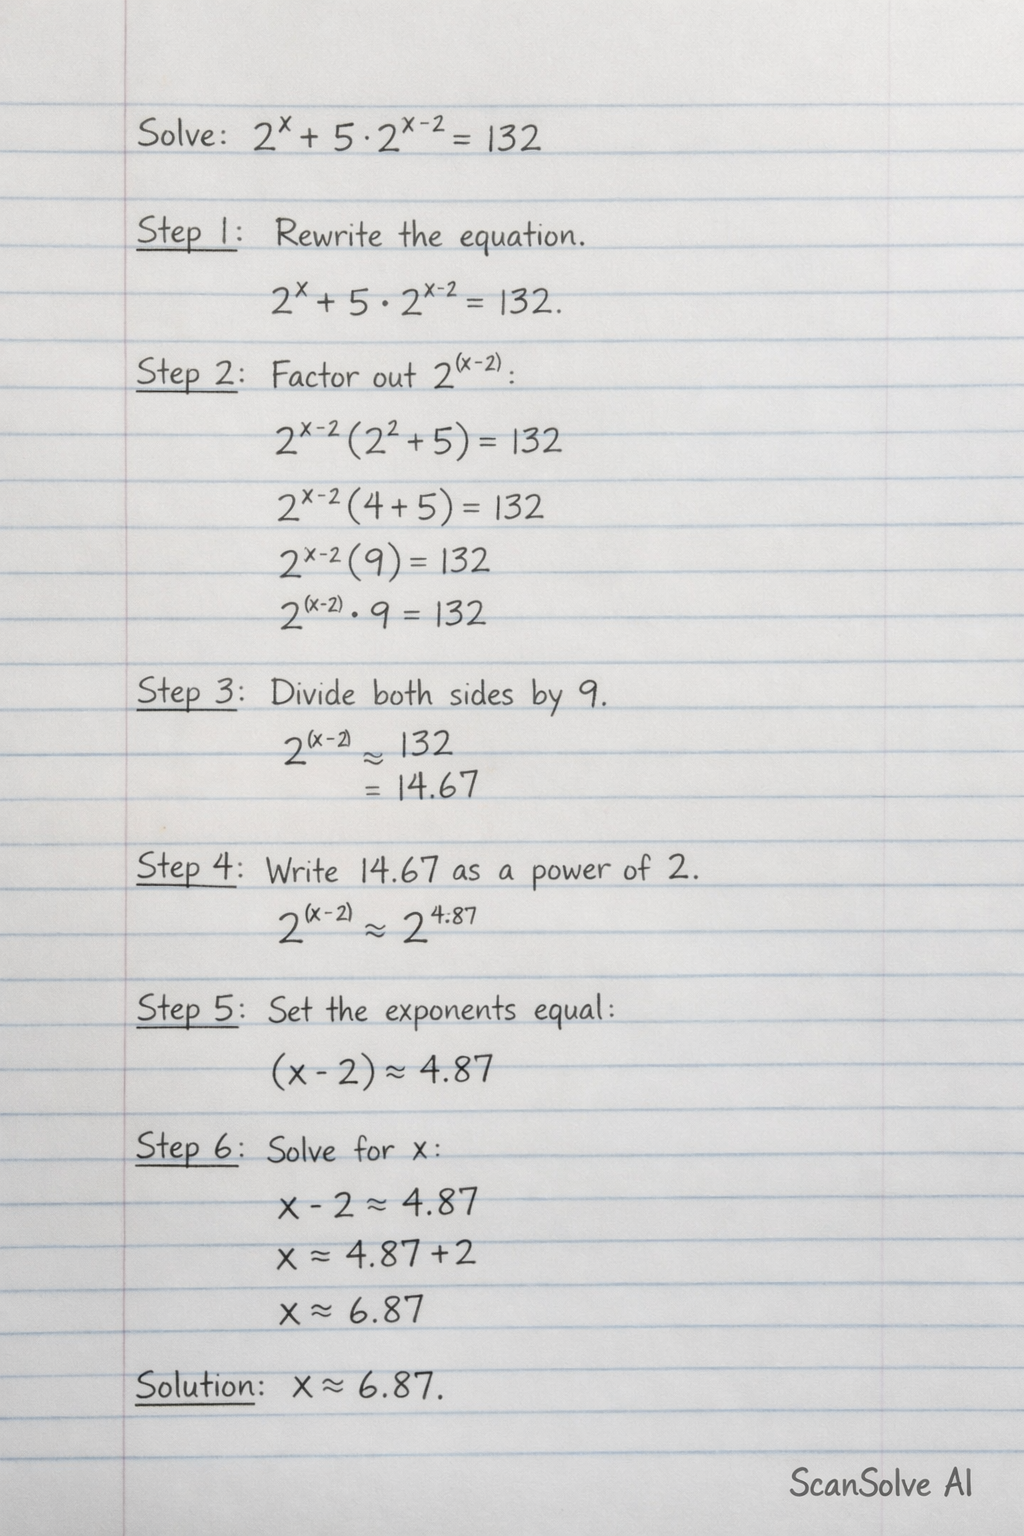 Solve: 2^x + 5 · 2^(x-2) = 132
Step 1: Rewrite the equation.
2^x + 5 · 2^(x-2) = 132.
Step 2: Factor out 2^(x-2):
2^(x-2) (2^2 + 5) = 132
2^(x-2) (4 + 5) = 132
2^(x-2) (9) = 132
2^(x-2) · 9 = 132
Step 3: Divide both sides by 9.
2^(x-2) ≈ 132
= 14.67
Step 4: Write 14.67 as a power of 2.
2^(x-2) ≈ 2^4.87
Step 5: Set the exponents equal:
(x - 2) ≈ 4.87
Step 6: Solve for x:
x - 2 ≈ 4.87
x ≈ 4.87 + 2
x ≈ 6.87
Solution: x ≈ 6.87.
ScanSolve AI